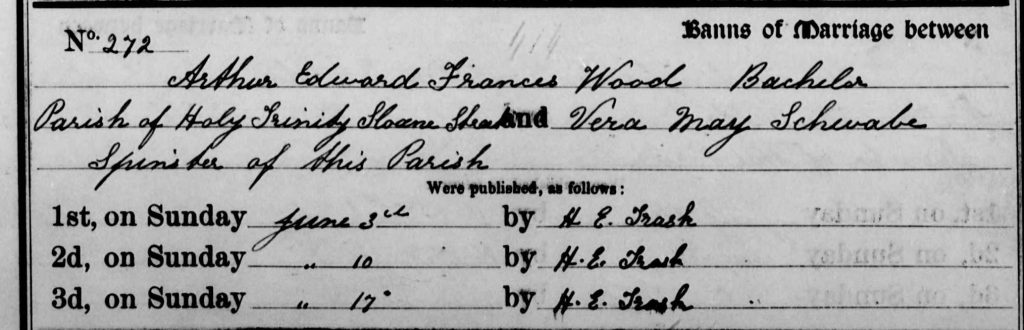 No. 272 Banns of Marriage between
Arthur Edward Frances Wood Bachelor
Parish of Holy Trinity Sloane Street and Vera May Schwabe
Spinster of this Parish
Were published, as follows:
1st, on Sunday June 3rd by H. E. Trash
2d, on Sunday " 10 by H. E. Trash
3d, on Sunday " 17 by H. E. Trash "